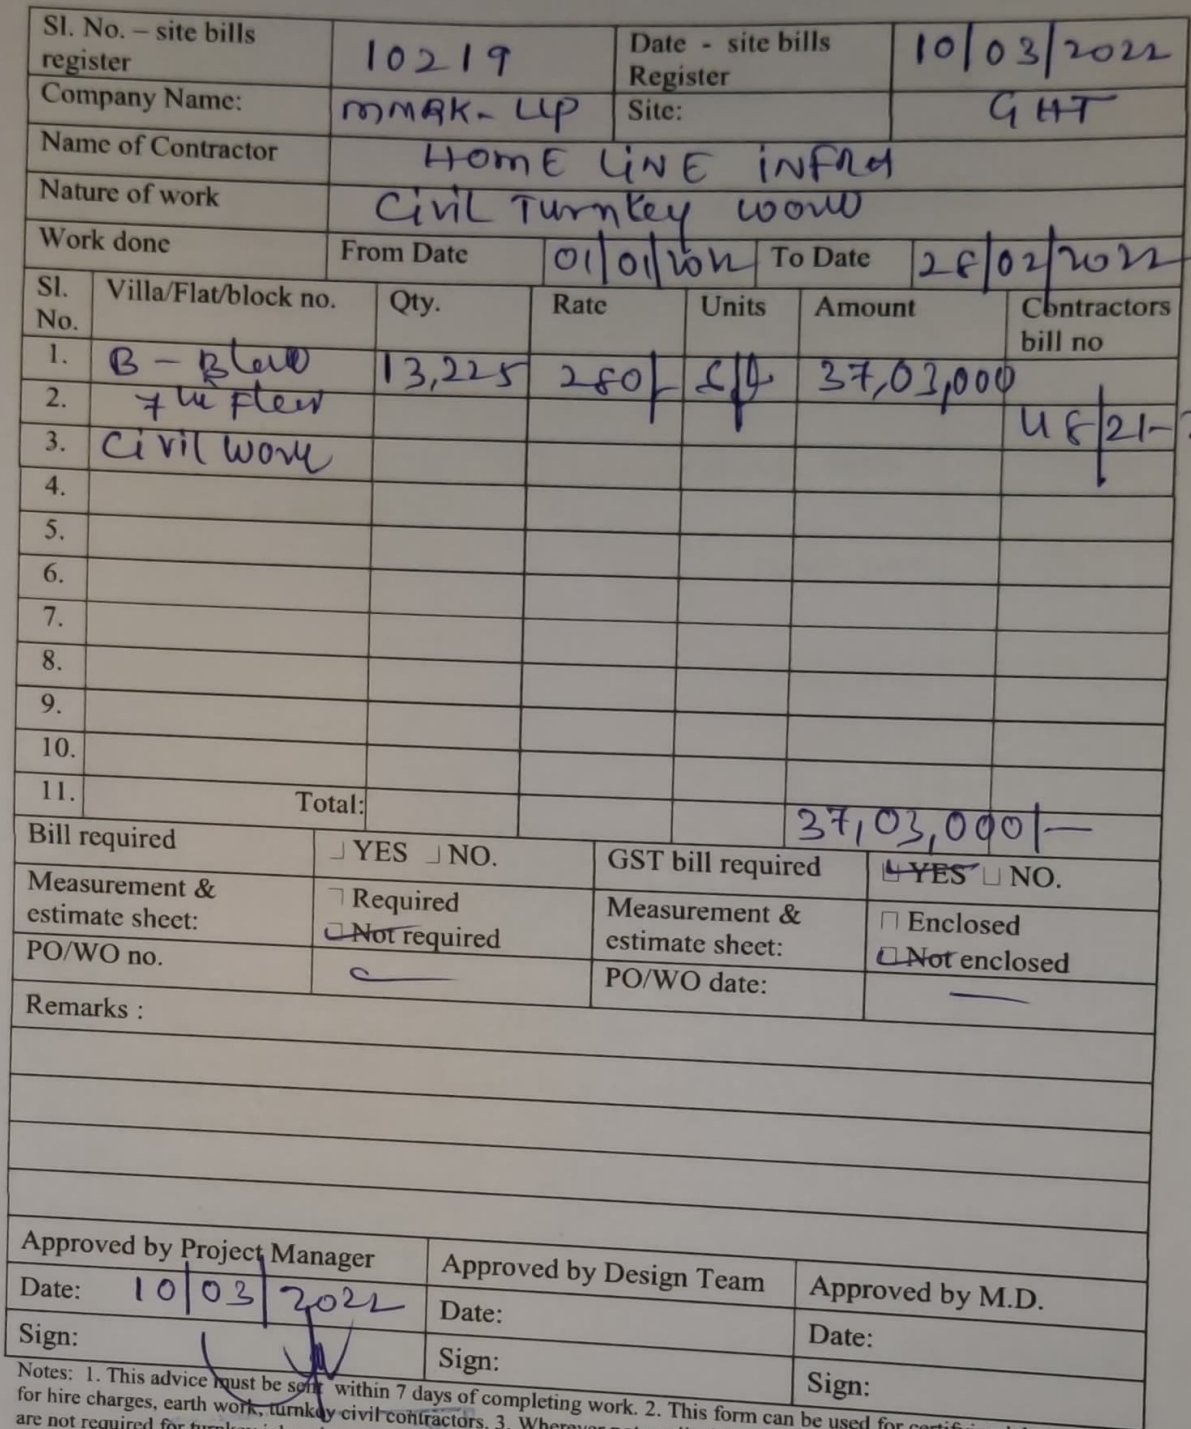 Sl. No. – site bills register 10219 Date - site bills Register 10/03/2022
Company Name: MMRK- LLP Site: GHT
Name of Contractor HOME LINE INFRA
Nature of work Civil Turnkey work
Work done From Date 01/01/2022 To Date 28/02/2022
Sl. No. Villa/Flat/block no. Qty. Rate Units Amount Contractors bill no
1. B - Block 13,225 280/- sft 37,03,000
2. 7th Floor 48/21-
3. Civil work
4.
5.
6.
7.
8.
9.
10.
11. Total: 37,03,000/-
Bill required YES NO. GST bill required YES NO.
Measurement & estimate sheet: Required Not required Measurement & estimate sheet: Enclosed Not enclosed
PO/WO no. — PO/WO date: —
Remarks :
Approved by Project Manager Approved by Design Team Approved by M.D.
Date: 10/03/2022 Date: Date:
Sign: Sign: Sign:
Notes: 1. This advice must be sent within 7 days of completing work. 2. This form can be used for
for hire charges, earth work, turnkey civil contractors. 3. Wherever
are not required for